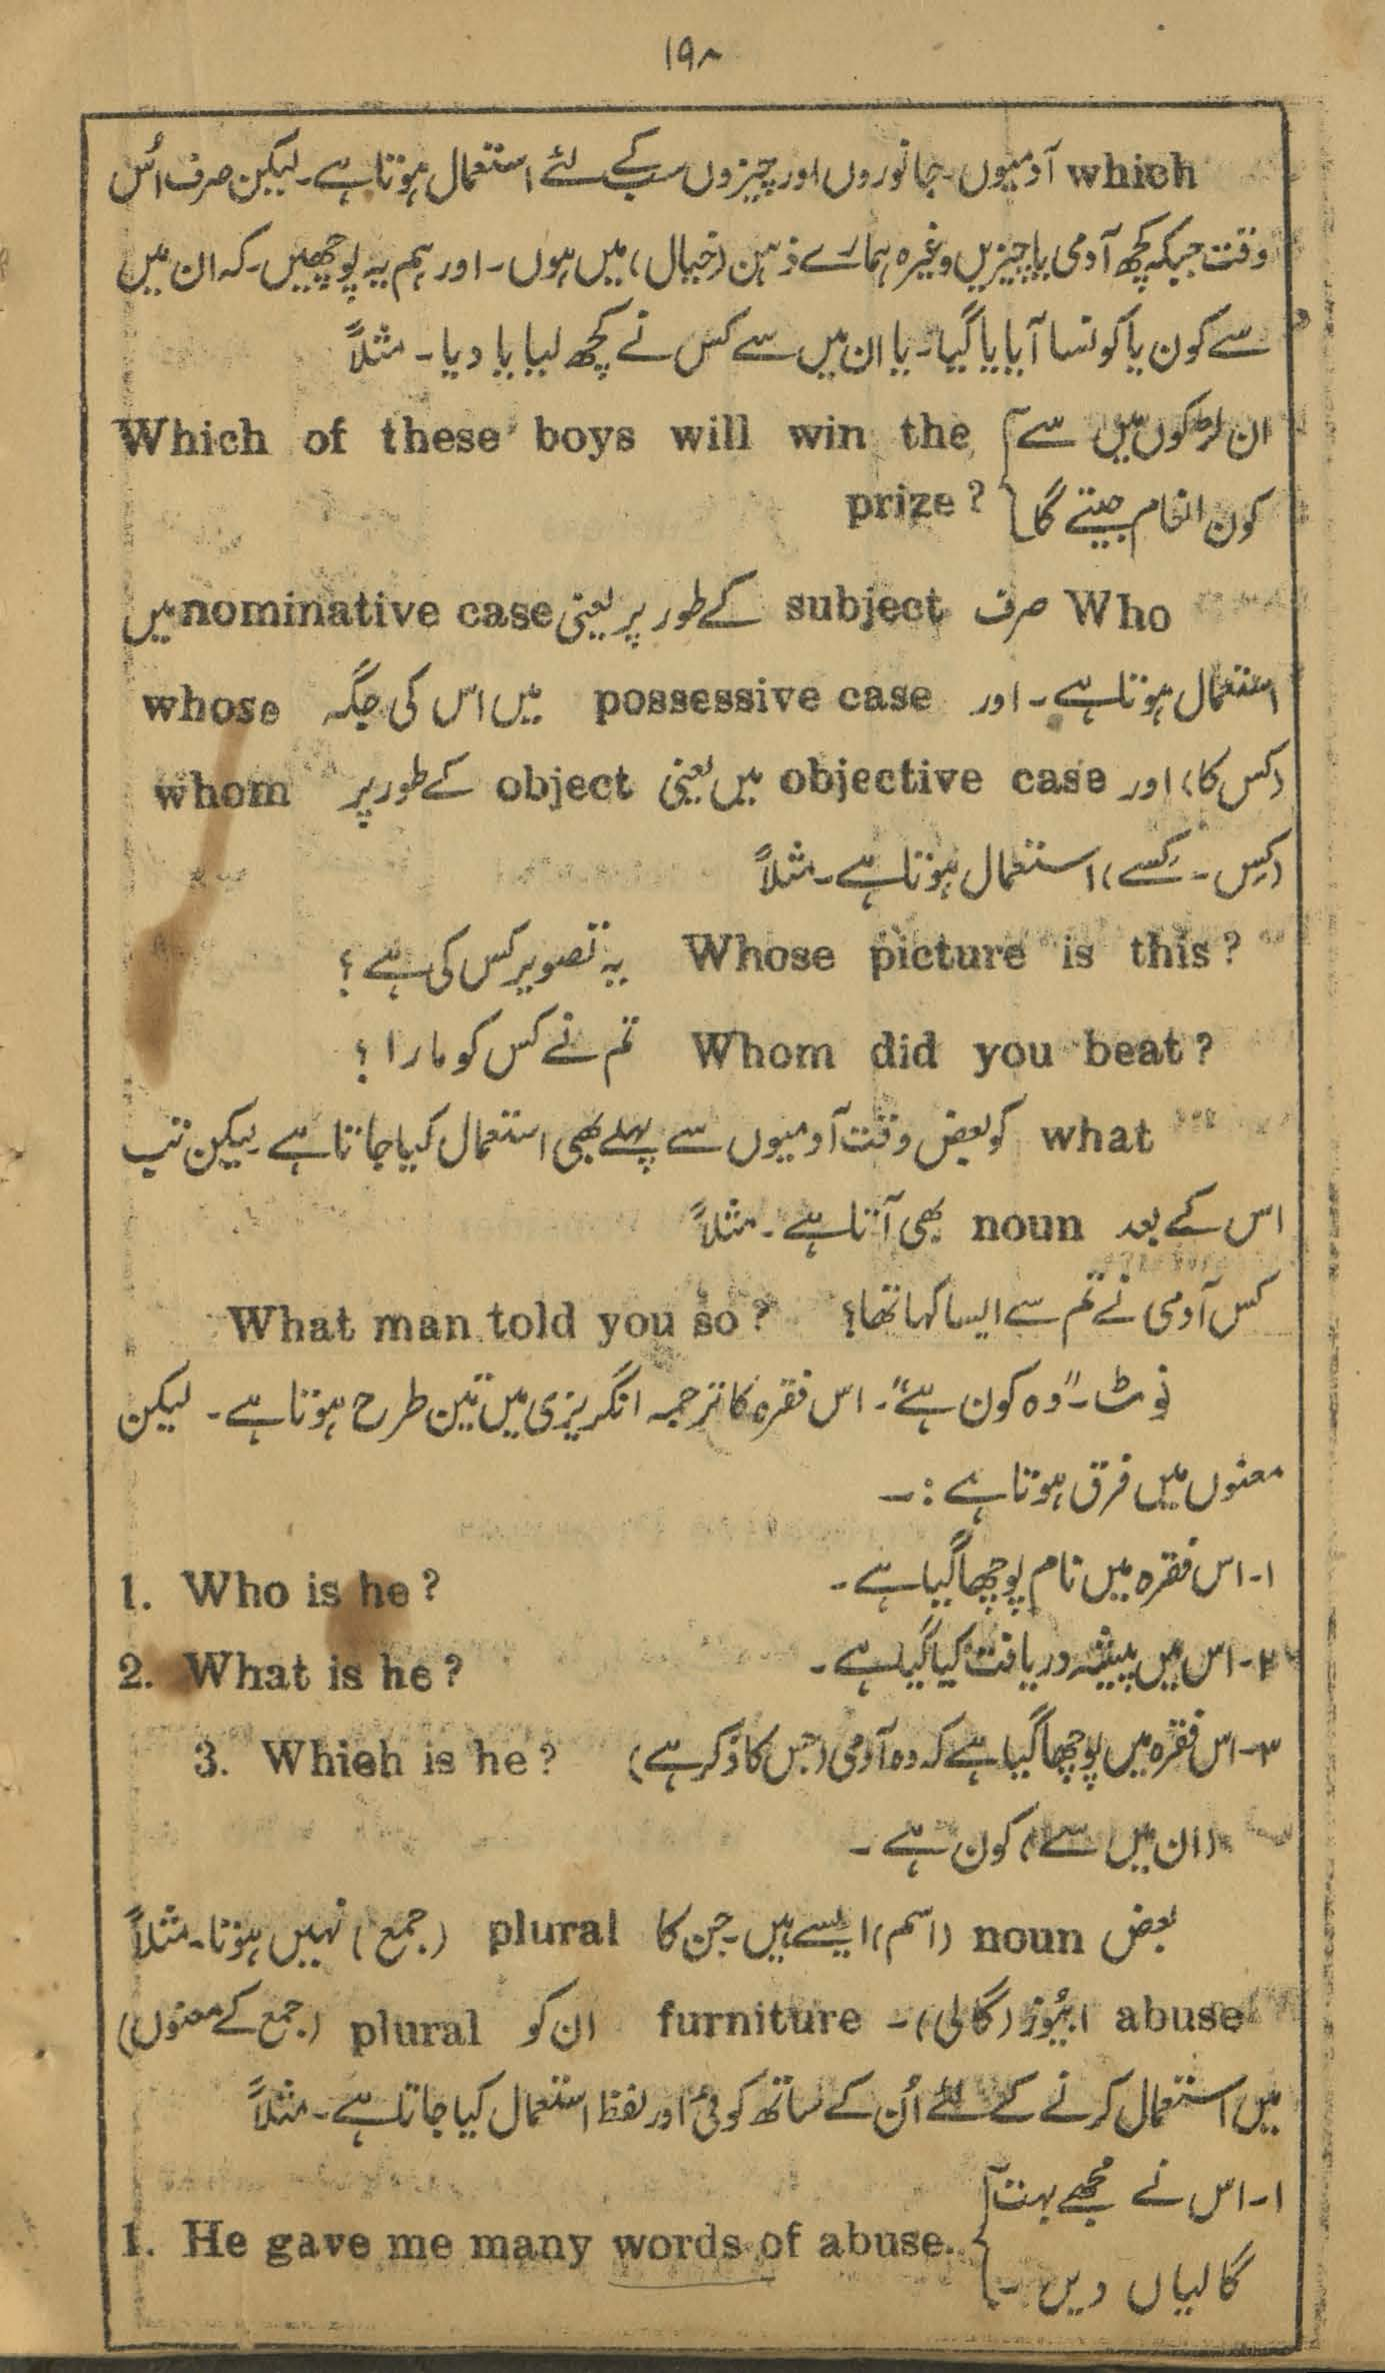 ۱۹۸
which آدمیوں۔ جانوروں اور چیزوں سب کے لئے استعمال ہوتا ہے۔ لیکن صرف اُس
وقت جبکہ کچھ آدمی یا چیزیں وغیرہ ہمارے ذہن (خیال) میں ہوں۔ اور ہم یہ پوچھیں۔ کہ ان میں
سے کون یا کونسا آیا یا گیا۔ یا ان میں سے کس نے کچھ لیا یا دیا۔ مثلاً
ان لڑکوں میں سے } Which of these boys will win the
کون انعام جیتے گا } prize?
Who صرف subject کے طور پر یعنی nominative case میں
استعمال ہوتا ہے۔ اور possessive case میں اس کی جگہ whose
(کس کا) اور objective case میں یعنی object کے طور پر whom
(کِس۔ کِسے) استعمال ہوتا ہے۔ مثلاً
Whose picture is this? یہ تصویر کس کی ہے؟
Whom did you beat? تم نے کس کو مارا؟
what کو بعض وقت آدمیوں سے پہلے بھی استعمال کیا جاتا ہے۔ لیکن تب
اس کے بعد noun بھی آتا ہے۔ مثلاً
کس آدمی نے تم سے ایسا کہا تھا؟ What man told you so?
نوٹ۔ "وہ کون ہے"۔ اس فقرہ کا ترجمہ انگریزی میں تین طرح ہوتا ہے۔ لیکن
معنوں میں فرق ہوتا ہے:۔
۱۔ اس فقرہ میں نام پوچھا گیا ہے۔ 1. Who is he?
۲۔ اس میں پیشہ دریافت کیا گیا ہے۔ 2. What is he?
۳۔ اس فقرہ میں پوچھا گیا ہے کہ وہ آدمی (جس کا ذکر ہے) 3. Which is he?
(ان میں سے) کون ہے۔
بعض noun (اسم) ایسے ہیں۔ جن کا plural (جمع) نہیں ہوتا۔ مثلاً
abuse ابیُوز (گالی)۔ furniture ان کو plural (جمع کے معنوں)
میں استعمال کرنے کے لئے اُن کے ساتھ کوئی اور لفظ استعمال کیا جاتا ہے۔ مثلاً
۱۔ اس نے مجھے بہت
گالیاں دیں۔ } 1. He gave me many words of abuse.